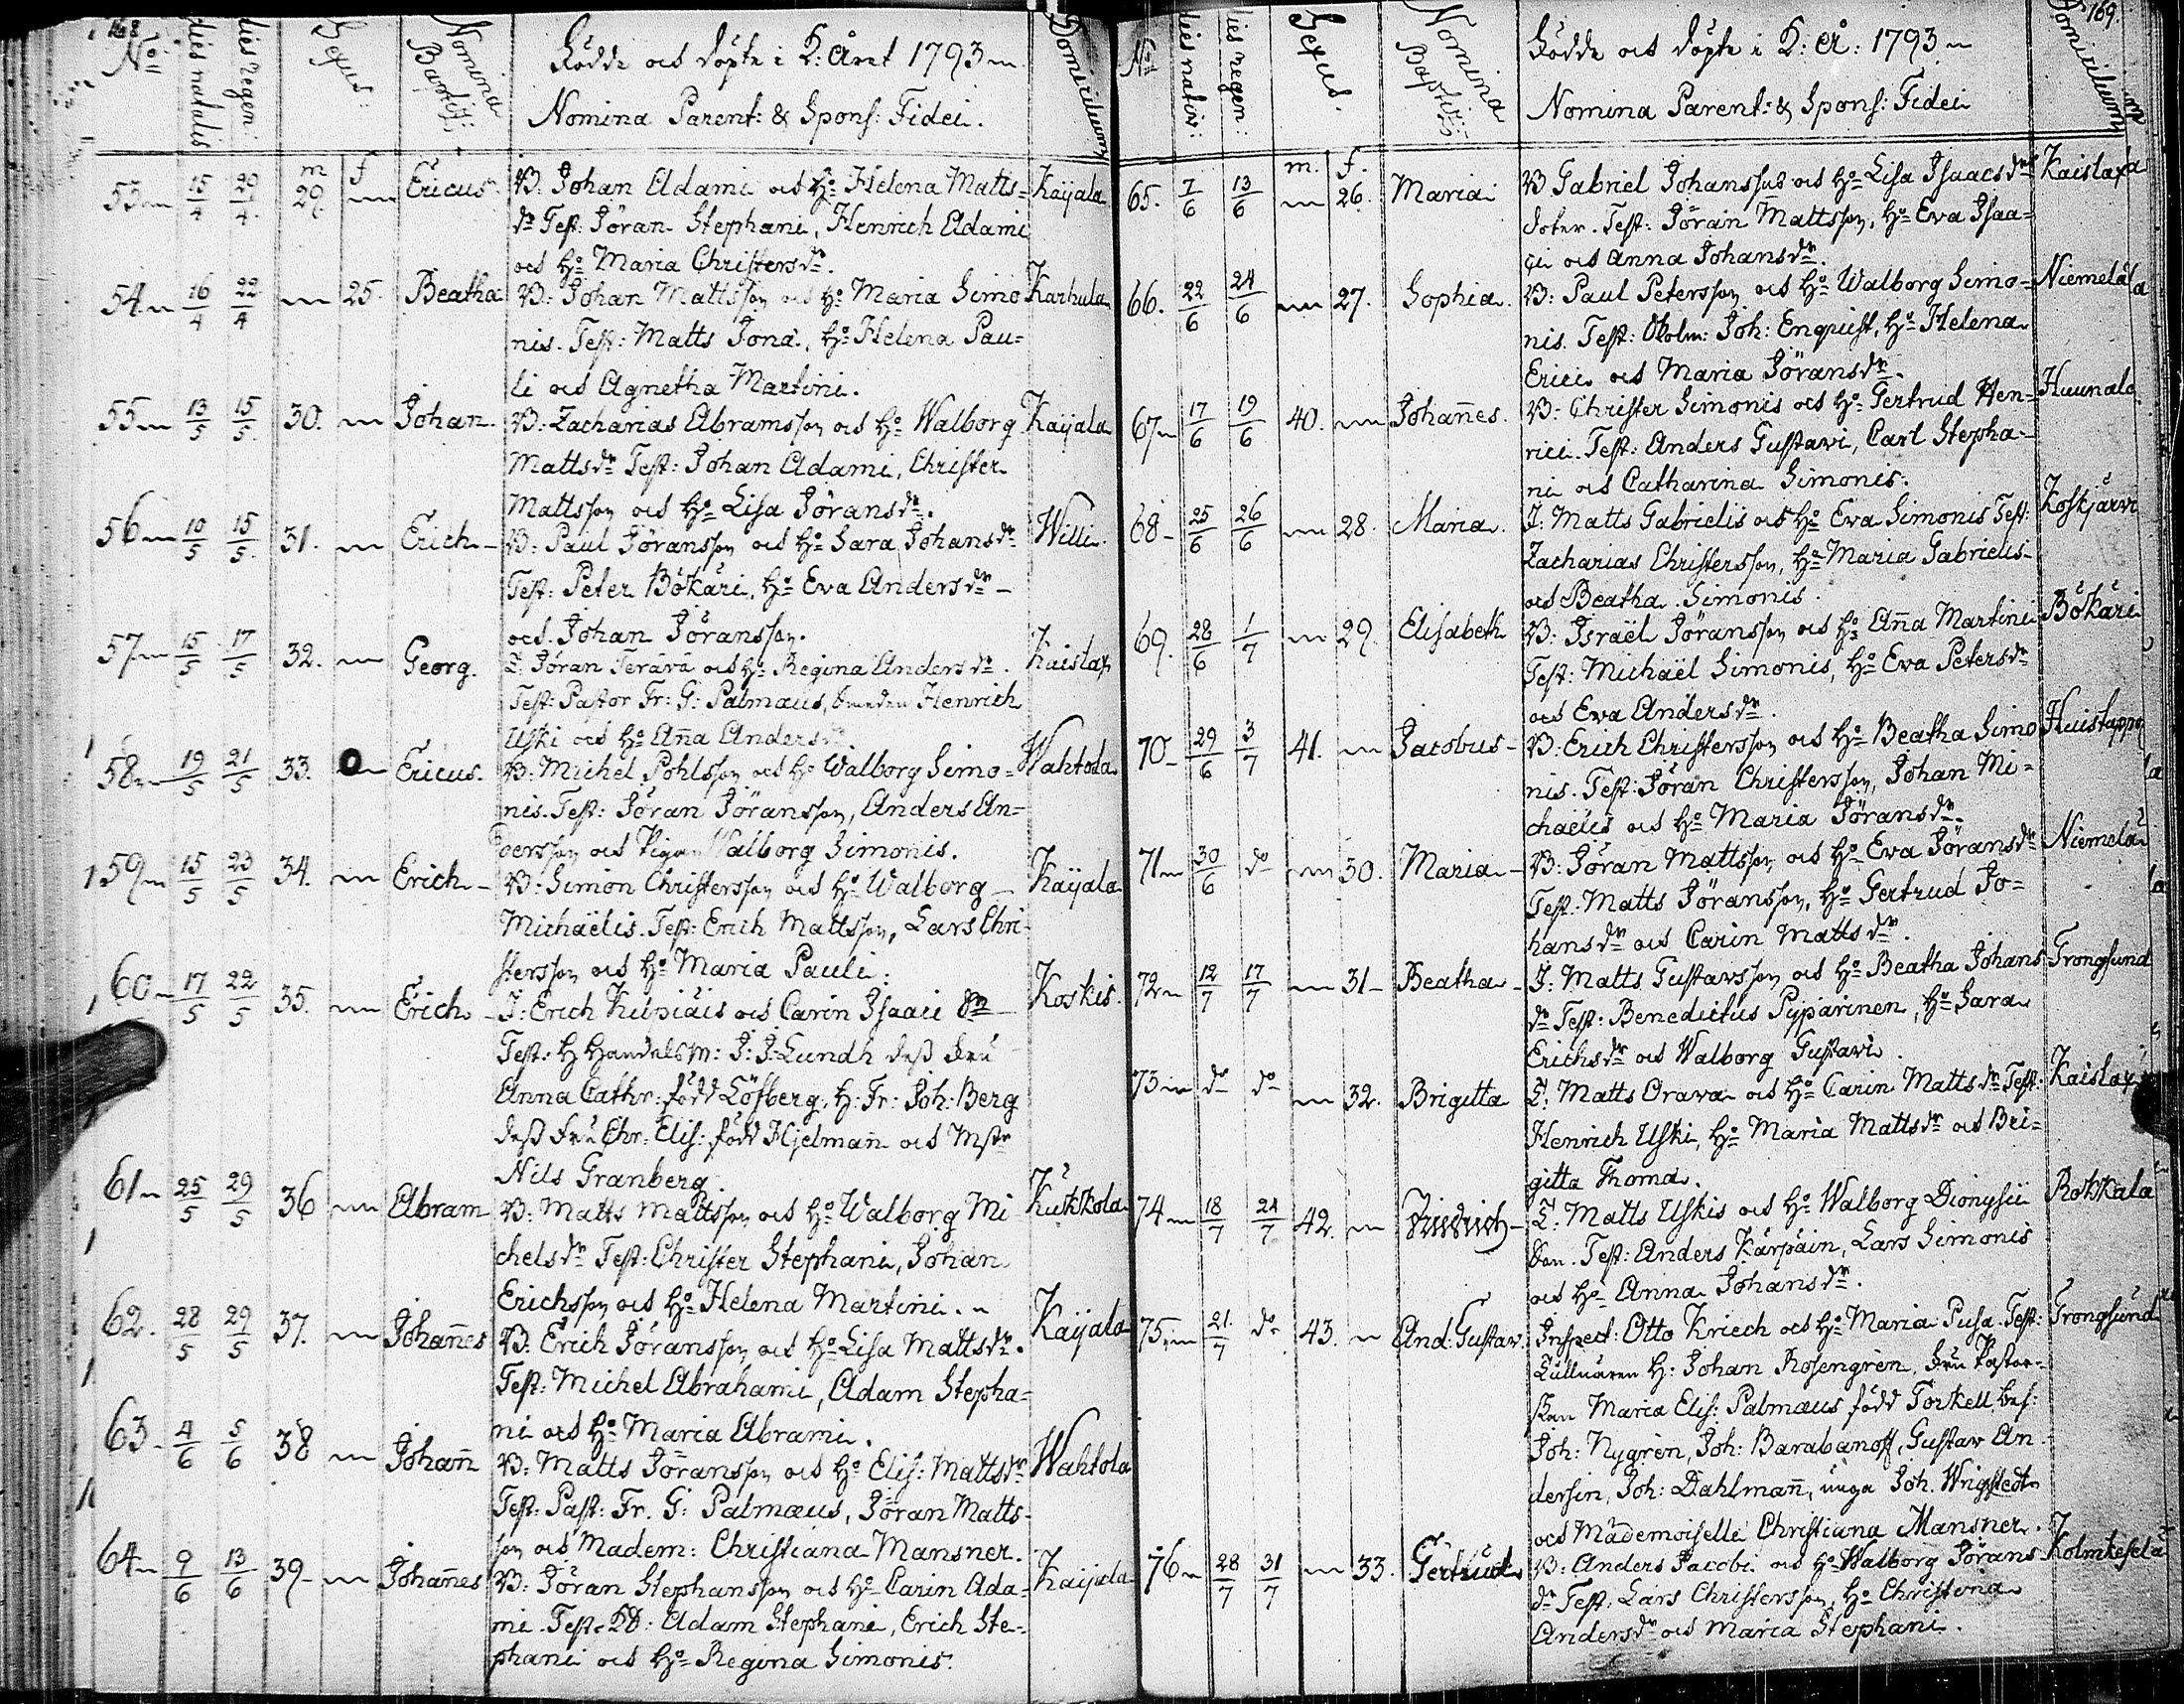 168.
No: dies natalis dies regen: Sexus: Nomina Baptist: Födde och döpte i K: Året 1793 Domicilium
Nomina Parent: & Spons: Fidei.
m f
53 15/4 20/4. 29. Ericus. B: Johan Adami och Ho Helena Matts= Kaÿala
dr Test: Jöran Stephani, Henrich Adami
och Ho Maria Christersdr.
54 16/4 22/4 25. Beatha B: Johan Mattsson och Ho Maria Simo Karhula
nis. Test: Matts Jonæ, Ho Helena Pau=
li och Agnetha Martini.
55 13/5 15/5. 30. Johan. B: Zacharias Abramsson och Ho Walborg Kaÿala
Mattsdr Test: Johan Adami, Christer
Mattsson och Ho Lisa Jöransdr.
56 10/5 15/5. 31. Erich B: Paul Jöransson och Ho Sara Johansdr Willi
Test: Peter Bökäri, Ho Eva Andersdr
och Johan Jöransson.
57 15/5 17/5 32. Georg. Jöran Terävä och Ho Regina Andersdr. Kaislax
Test: Pastor Fr: G: Palmæus, Henrich
Uski och Ho Aña Andersdr
58 19/5 21/5 33. Ericus. B: Michel Pohlsson och Ho Walborg Simo= Wahtola
nis. Test: Jöran Jöransson, Anders An=
dersson och Pigan Walborg Simonis.
59 15/5 23/5 34. Erich B: Simon Christersson och Ho Walborg Kaÿala
Michaëlis. Test: Erich Mattsson, Lars Chri=
stersson och Ho Maria Pauli.
60 17/5 22/5 35. Erich I: Erich Kupiäis och Carin Isaaci dr Koskis.
Test: H Handelsm: J: J: Lundh dess Fru
Anna Cathr: född Löfberg, H: Fr: Joh: Berg
dess Fru Chr: Elis: född Hjelmañ och Mstr
Nils Granberg.
61 25/5 29/5 36 Abram B: Matts Mattsson och Ho Walborg Mi Kukkola
chelsdr Test: Christer Stephani, Johan
Erichsson och Ho Helena Martini.
62. 28/5 29/5 37. Johañes B: Erich Jöransson och Ho Lisa Mattsdr. Kaÿala
Test: Michel Abrahami, Adam Stepha=
ni och Ho Maria Abrami.
63 4/6 5/6 38 Johañ B: Matts Jöransson och Ho Elis: Mattsdr Wahtola
Test: Past: Fr. G: Palmæus, Jöran Matts=
son och Madem: Christiana Mansner.
64 9/6 13/6 39 Johañes B: Jöran Stephansson och Ho Carin Ada= Kaijala
mi. Test: Adam Stephani, Erich Ste=
phani och Ho Regina Simonis.
169.
No dies nativ: dies regen: Sexus. Nomina Baptist: Födde och döpte i K: År: 1793 Domicilium
Nomina Parent: & Spons: Fidei
m. f.
65. 7/6 13/6 26. Maria B Gabriel Johansson och Ho Lisa Isaacsdr Kaislax
doter. Test: Jöran Mattsson, Ho Eva Isaa=
ci och Anna Johansdr.
66. 22/6 24/6 27. Sophia. B: Paul Petersson och Ho Walborg Simo= Niemelä
nis. Test: Joh: Enquist, Ho Helena
Erici och Maria Jöransdr.
67 17/6 19/6 40. Johañes. B: Christer Simonis och Ho Gertrud Hen= Huunala
rici. Test: Anders Gustavi, Carl Stepha=
ni och Catharina Simonis.
68 25/6 26/6 28. Maria. I: Matts Gabrielis och Ho Eva Simonis Test: Koskjärvi
Zacharias Christersson, Ho Maria Gabrielis
och Beatha Simonis.
69. 28/6 1/7 29. Elisabeth B: Israël Jöransson och Ho Aña Martini Bökäri
Test: Michaël Simonis, Ho Eva Petersdr
och Eva Andersdr.
70 29/6 3/7 41. Jacobus B: Erich Christersson och Ho Beatha Simo
nis. Test: Jöran Christersson, Johan Mi=
chaëlis och Ho Maria Jöransdr.
71 30/6 do 30. Maria B: Jöran Mattsson och Ho Eva Jöransdr Niemelä
Test: Matts Jöransson, Ho Gertrud Jo=
hansdr och Carin Mattsdr.
72 12/7 17/7 31 Beatha I: Matts Gustavsson och Ho Beatha Johans Trongsund
dr Test: Benedictus Pypärinen, Ho Sara
Erichsdr och Walborg Gustavi.
73 do do 32. Brigitta Matts Orava och Ho Carin Mattsdr Test: Kaislax
Henrich Uski, Ho Maria Mattsdr och Bri=
gitta Thomæ.
74 18/7 21/7 42. Matts Uskis och Ho Walborg Dionysii Rokkala
Test: Anders Kärpäin, Lars Simonis
och Ho Anna Johansdr.
75 21/7 do 43. And: Gustav. Inspect: Otto Kriech och Ho Maria Pusa Test: Trongsund
H: Johan Rosengrèn, Fru Pastor=
skan Maria Elis: Palmæus född Torkell, bef:
Joh: Nygrèn, Joh: Barabanoff, Gustav An=
dersin, Joh: Dahlmañ, unga Joh. Wrigstedt
och Mademoiselle Christiana Mansner.
76 28/7 31/7 33. Gertrud B: Anders Jacobi och Ho Walborg Jörans Kolmikeselä
dr Test: Lars Christersson, Ho Christina
Andersdr och Maria Stephani.